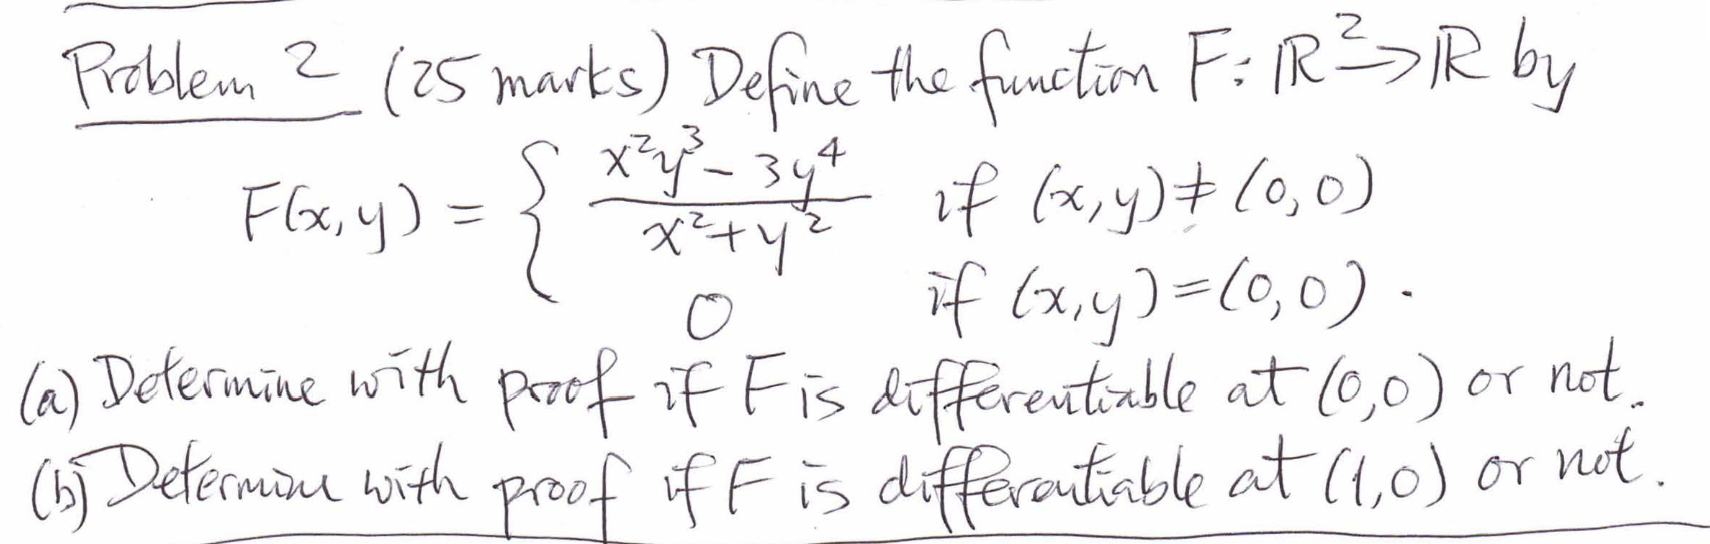 Problem 2 (25 marks) Define the function F: ℝ²→ℝ by
F(x,y) = { (x²y³ - 3y⁴)/(x²+y²) if (x,y)≠(0,0)
0 if (x,y)=(0,0).
(a) Determine with proof if F is differentiable at (0,0) or not.
(b) Determine with proof if F is differentiable at (1,0) or not.